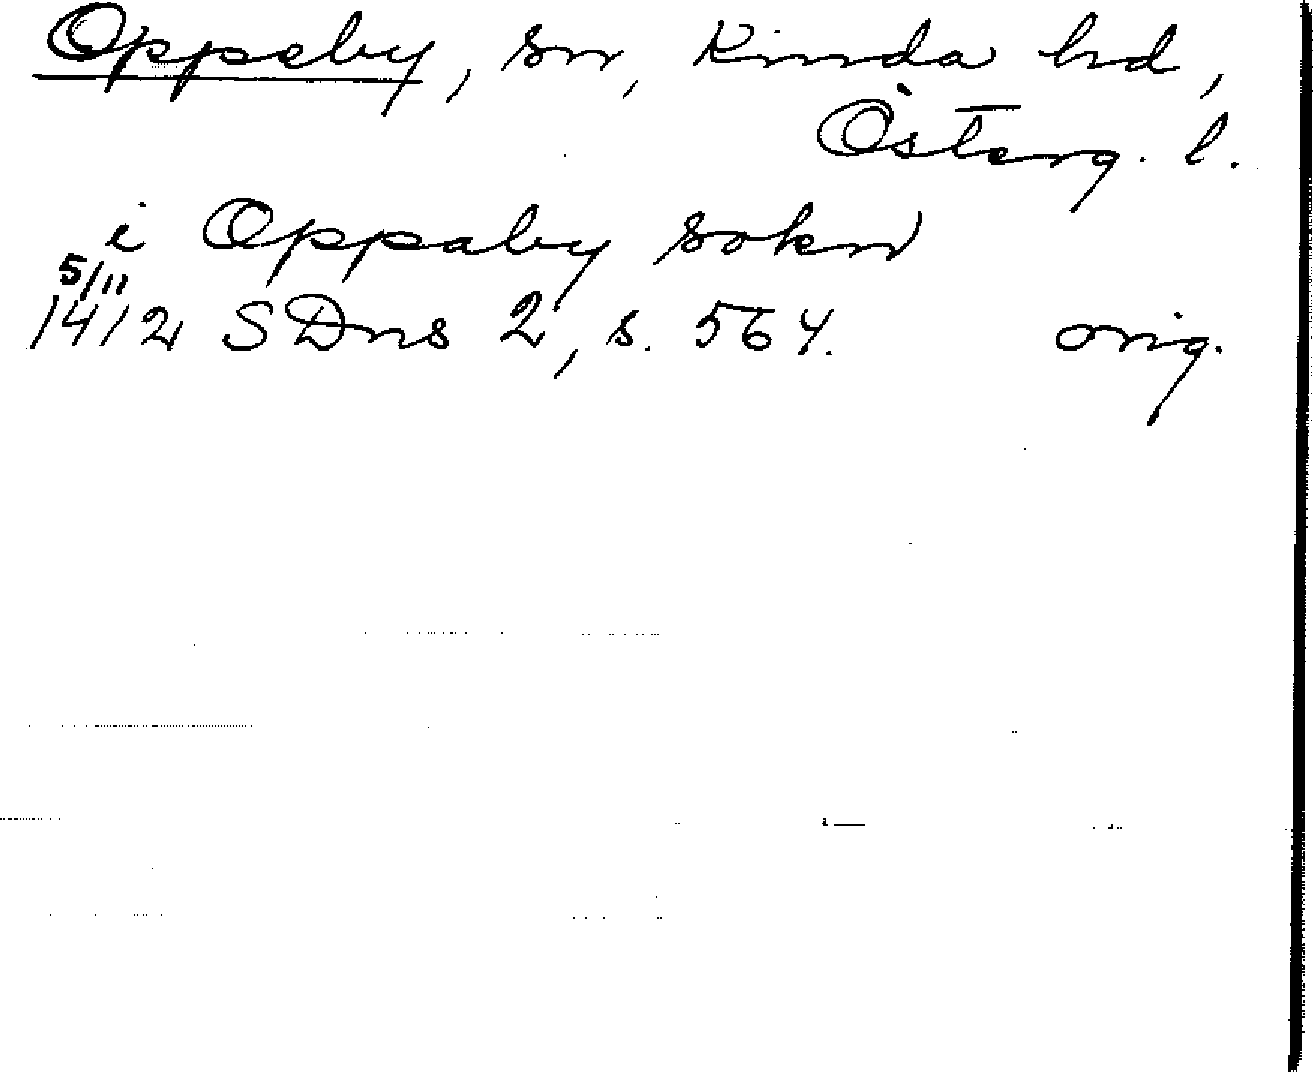 Oppeby, sn, Kinda hd,
Österg. l.
i Oppaby sokn
5/11
1412 SDns 2, s. 564. orig.